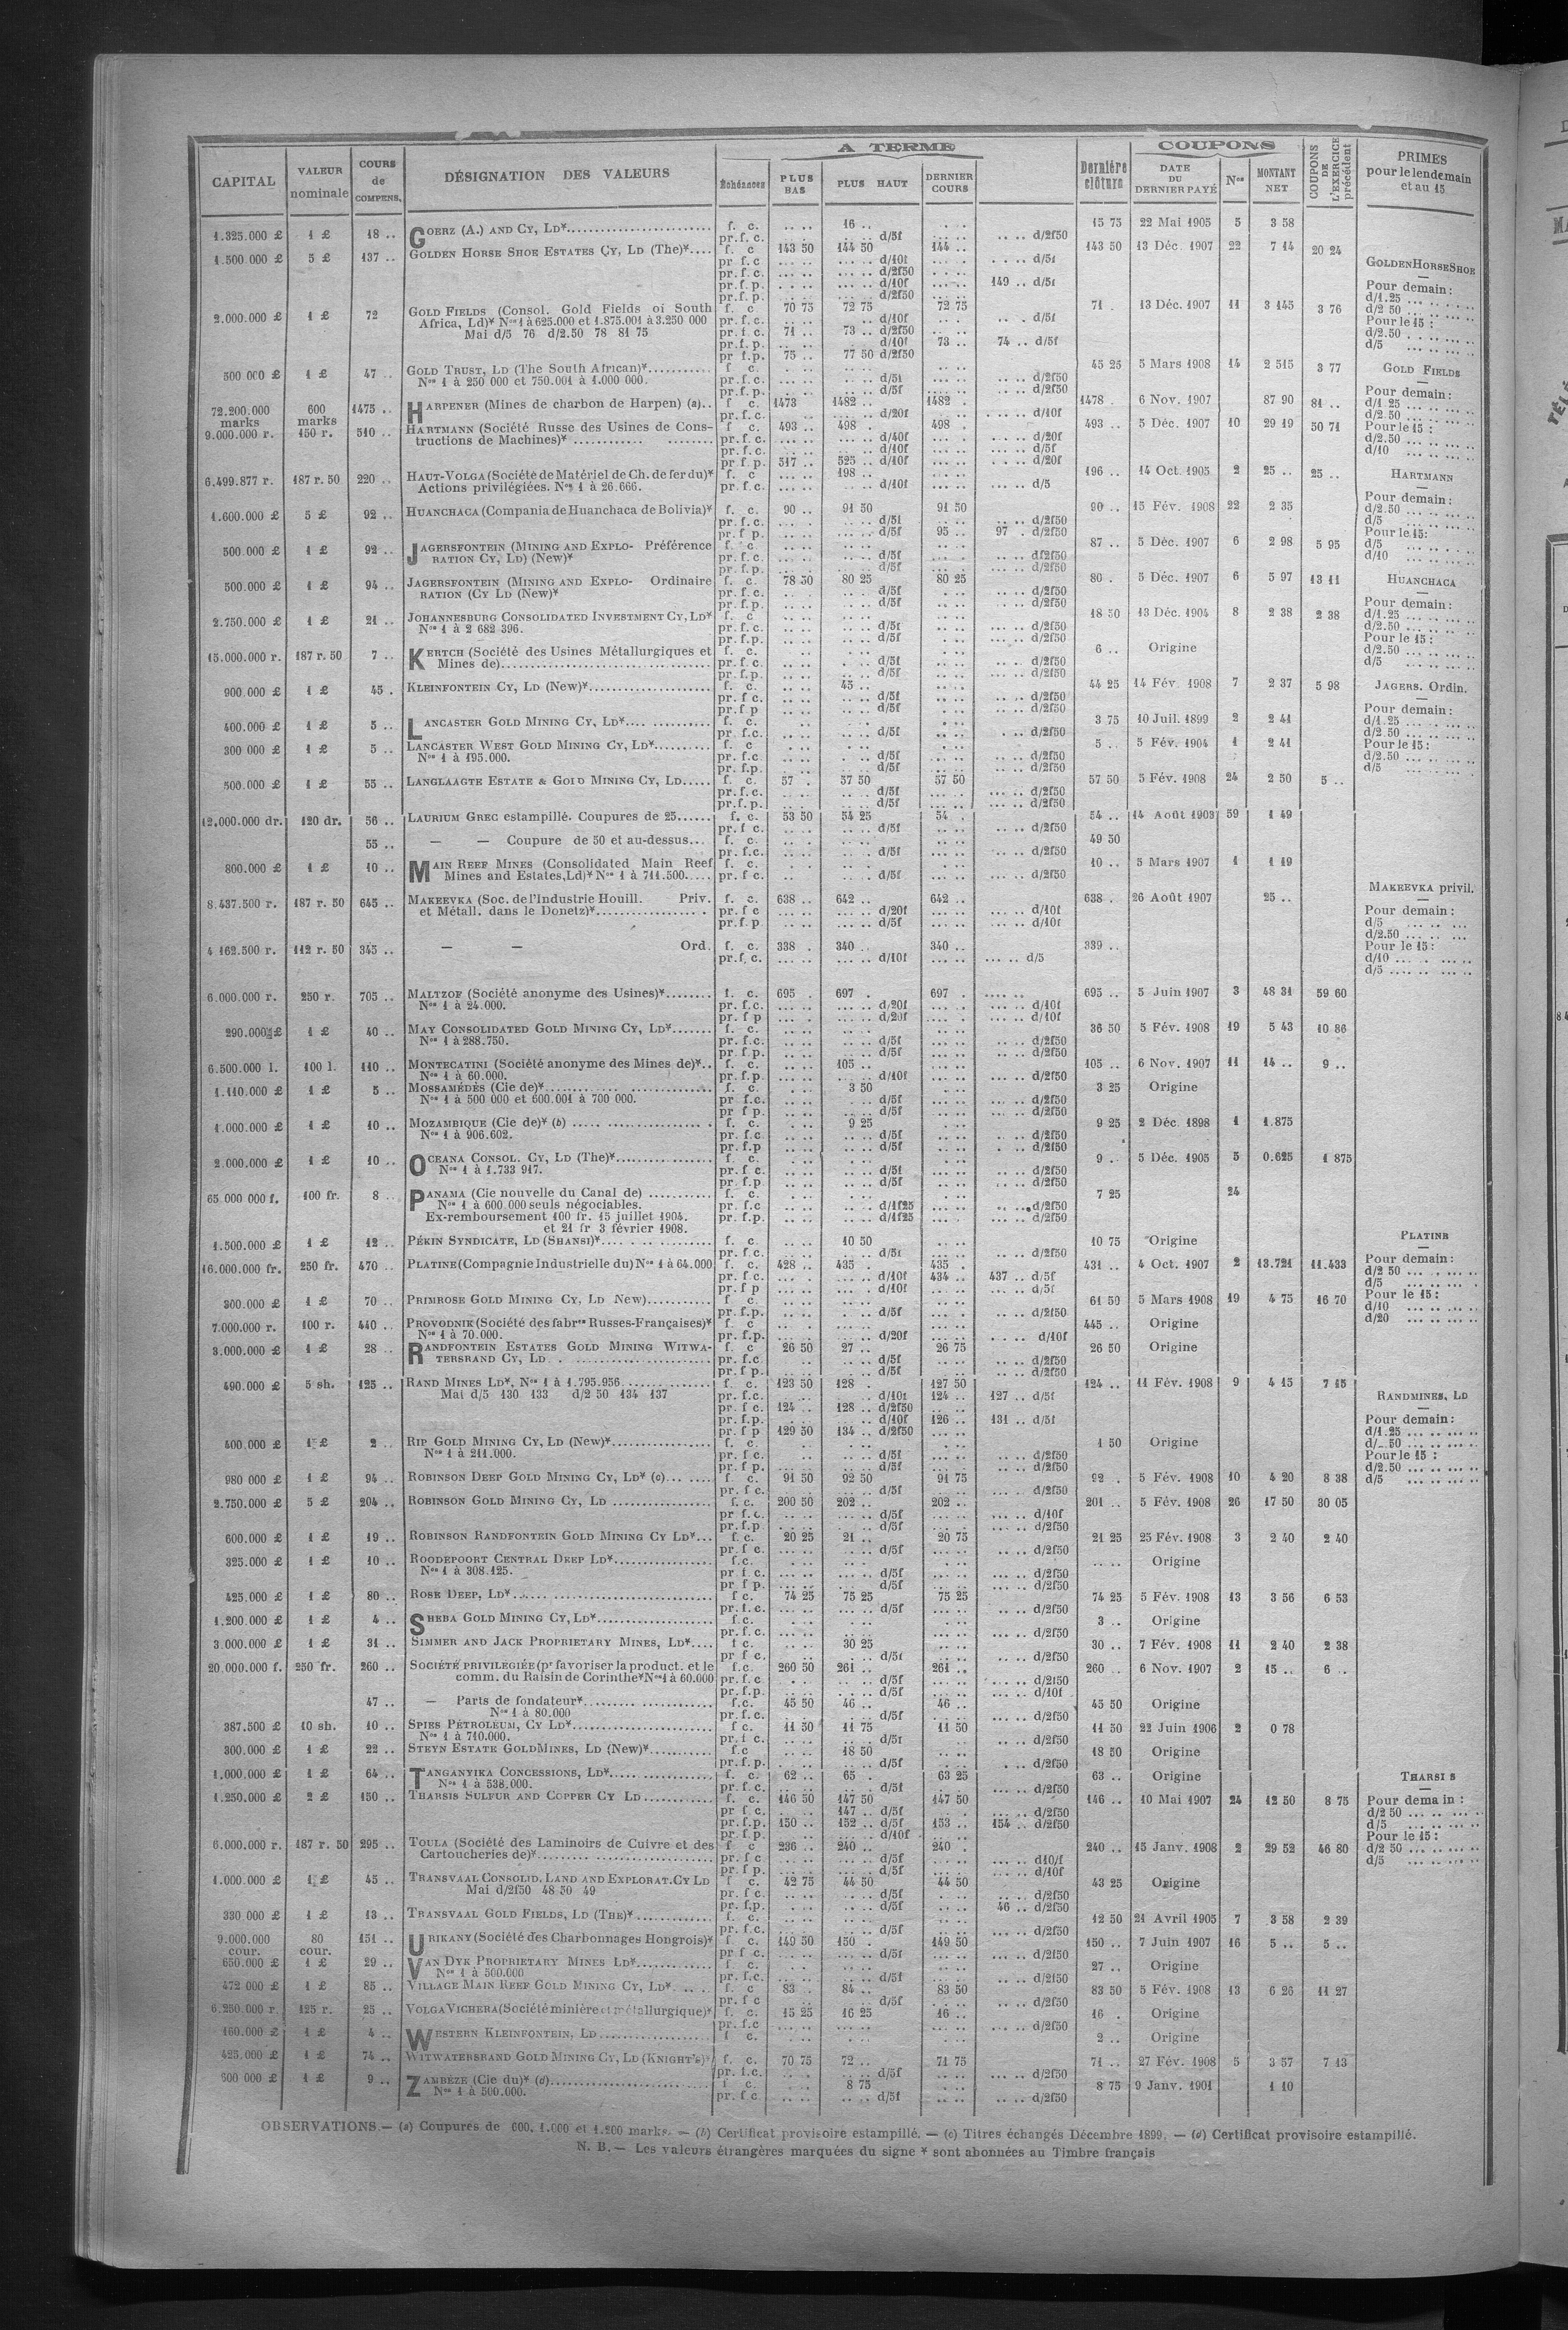 CAPITAL | VALEUR nominale | COURS de COMPENS. | DÉSIGNATION DES VALEURS | A TERME | Échéances | PLUS BAS | PLUS HAUT | DERNIER COURS | Dernière clôture | COUPONS | DATE DU DERNIER PAYÉ | Nos | MONTANT NET | COUPONS DE L'EXERCICE précédent | PRIMES pour le lendemain et au 15
1.325.000 £ 1 £ 18 .. GOERZ (A.) AND CY, LD* f. c. 16 .. 15 75 22 Mai 1905 5 3 58
pr. f. c. d/5f d/2f50
1.500 000 £ 5 £ 137 .. GOLDEN HORSE SHOE ESTATES CY, LD (The)* f. c 143 50 144 50 144 .. 143 50 13 Déc. 1907 22 7 14 20 24
pr f.c d/10f d/5f
pr. f. c. d/2f50
pr. f. p. d/10f 149 .. d/5f
pr. f. p. d/2f50
2.000.000 £ 1 £ 72 GOLD FIELDS (Consol. Gold Fields of South f. c 70 75 72 75 72 75 71 . 13 Déc. 1907 11 3 145 3 76
Africa, Ld)* Nos 1 à 625.000 et 1.875.001 à 3.250 000 pr. f. c. d/10f d/5f
Mai d/5 76 d/2.50 78 81 75 pr. f. c. 71 .. 73 .. d/2f50
pr. f. p. d/10f 73 .. 74 .. d/5f
pr f.p. 75 .. 77 50 d/2f50
500 000 £ 1 £ 47 .. GOLD TRUST, LD (The South African)* f c. 45 25 5 Mars 1908 14 2 515 3 77
Nos 1 à 250 000 et 750.001 à 1.000 000. pr. f. c. d/5f d/2f50
pr. f. p. d/2f50
72.200.000 marks 600 marks 1475 .. HARPENER (Mines de charbon de Harpen) (a).. f c. 1473 1482 .. 1482 . 1478 . 6 Nov. 1907 87 90 81 ..
pr. f. c. d/20f d/10f
9.000.000 r. 150 r. 510 .. HARTMANN (Société Russe des Usines de Cons- f c. 493 .. 498 . 498 . 493 .. 5 Déc. 1907 10 29 19 50 71
tructions de Machines)* pr. f. c. d/40f d/20f
pr. f. c. d/10f d/5f
pr f p. 517 .. 525 .. d/10f d/20f
6.499.877 r. 187 r. 50 220 .. HAUT-VOLGA (Société de Matériel de Ch. de fer du)* f. c 198 .. 196 .. 14 Oct. 1905 2 25 .. 25 ..
Actions privilégiées. Nos 1 à 26.666. pr. f. c. d/10f d/5
1.600.000 £ 5 £ 92 .. HUANCHACA (Compania de Huanchaca de Bolivia)* f. c. 90 .. 91 50 91 50 90 .. 15 Fév. 1908 22 2 35
pr. f. c. d/5f d/2f50
pr. f p. d/5f 95 .. 97 . d/2f50
500.000 £ 1 £ 92 .. JAGERSFONTEIN (MINING AND EXPLO- Préférence f c 87 .. 5 Déc. 1907 6 2 98 5 95
RATION CY, LD) (New)* pr. f. c. d/5f d/2f50
pr. f. p. d/5f d/2f50
500.000 £ 1 £ 94 .. JAGERSFONTEIN (MINING AND EXPLO- Ordinaire f. c. 78 50 80 25 80 25 80 . 5 Déc. 1907 6 5 97 13 11
RATION (CY LD (New)* pr. f. c. d/5f d/2f50
pr. f. p. d/5f d/2f50
2.750.000 £ 1 £ 21 .. JOHANNESBURG CONSOLIDATED INVESTMENT CY, LD* f. c 18 50 13 Déc. 1904 8 2 38 2 38
Nos 1 à 2 682 396. pr. f. c. d/5f d/2f50
pr. f. p. d/5f d/2f50
15.000.000 r. 187 r. 50 7 .. KERTCH (Société des Usines Métallurgiques et f. c. 6 .. Origine
Mines de) pr. f. c. d/5f d/2f50
pr. f. p. d/5f d/2f50
900.000 £ 1 £ 45 . KLEINFONTEIN CY, LD (New)* f. c. 45 .. 44 25 14 Fév. 1908 7 2 37 5 98
pr. f c. d/5f d/2f50
pr. f.p d/5f d/2f50
400.000 £ 1 £ 5 .. LANCASTER GOLD MINING CY, LD* f. c. 3 75 10 Juil. 1899 2 2 41
pr. f.c. d/5f d/2f50
300 000 £ 1 £ 5 .. LANCASTER WEST GOLD MINING CY, LD* f. c 5 .. 5 Fév. 1904 1 2 41
Nos 1 à 195.000. pr. f. c d/5f d/2f50
pr. f.p. d/5f d/2f50
500.000 £ 1 £ 55 .. LANGLAAGTE ESTATE & GOLD MINING CY, LD f. c. 57 . 57 50 57 50 57 50 5 Fév. 1908 24 2 50 5 ..
pr. f. c. d/5f d/2f50
pr. f. p. d/5f d/2f50
12.000.000 dr. 120 dr. 56 .. LAURIUM GREC estampillé. Coupures de 25 f. c. 53 50 54 25 54 . 54 .. 14 Août 1903 59 1 49
pr. f c. d/5f d/2f50
55 .. — — Coupure de 50 et au-dessus... f. c. 49 50
pr. f.c. d/5f d/2f50
800.000 £ 1 £ 10 .. MAIN REEF MINES (Consolidated Main Reef f. c. 10 .. 5 Mars 1907 1 1 19
Mines and Estates, Ld)* Nos 1 à 711.500. pr. f c. d/5f d/2f50
8.437.500 r. 187 r. 50 645 .. MAKEEVKA (Soc. de l'Industrie Houill. Priv. f. c. 638 .. 642 .. 642 .. 638 . 26 Août 1907 25 ..
et Métall. dans le Donetz)* pr. f c d/20f d/10f
pr. f. p d/5f d/10f
4 162.500 r. 112 r. 50 345 .. — — Ord. f. c. 338 . 340 .. 340 .. 339 ..
pr. f. c. d/10f d/5
6.000.000 r. 250 r. 705 .. MALTZOF (Société anonyme des Usines)* f. c. 695 . 697 . 697 . 695 .. 5 Juin 1907 3 48 31 59 60
Nos 1 à 24.000. pr. f.c. d/20f d/10f
pr. f p d/20f d/10f
290.000 £ 1 £ 40 .. MAY CONSOLIDATED GOLD MINING CY, LD* f. c. 36 50 5 Fév. 1908 19 5 43 10 86
Nos 1 à 288.750. pr. f.c. d/5f d/2f50
pr. f p. d/5f d/2f50
6.500.000 l. 100 l. 110 .. MONTECATINI (Société anonyme des Mines de)* f. c. 105 .. 105 .. 6 Nov. 1907 11 14 .. 9 ..
Nos 1 à 60.000. pr. f.p. d/10f d/2f50
1.110.000 £ 1 £ 5 .. MOSSAMÉDÈS (Cie de)* f. c. 3 50 3 25 Origine
Nos 1 à 500 000 et 600.001 à 700 000. pr f.c. d/5f d/2f50
pr f p. d/5f d/2f50
1.000.000 £ 1 £ 10 .. MOZAMBIQUE (Cie de)* (b) f. c. 9 25 9 25 2 Déc. 1898 1 1.875
Nos 1 à 906.602. pr. f.c d/5f d/2f50
pr. f.p d/5f d/2f50
2.000.000 £ 1 £ 10 .. OCEANA CONSOL. CY, LD (The)* f. c. 9 . 5 Déc. 1905 5 0.625 1 875
Nos 1 à 1.733 917. pr. f c. d/5f d/2f50
pr. f.p. d/5f d/2f50
65.000 000 f. 100 fr. 8 .. PANAMA (Cie nouvelle du Canal de) f. c. 7 25 24
Nos 1 à 600.000 seuls négociables. pr. f.c d/1f25 d/2f50
Ex-remboursement 100 fr. 15 juillet 1904. pr. f.p. d/1f25 d/2f50
et 21 fr 3 février 1908.
1.500.000 £ 1 £ 12 .. PÉKIN SYNDICATE, LD (SHANSI)* f. c. 10 50 10 75 Origine
pr. f.c. d/5f d/2f50
16.000.000 fr. 250 fr. 470 .. PLATINE (Compagnie Industrielle du) Nos 1 à 64.000 f. c. 428 .. 435 . 435 . 431 .. 4 Oct. 1907 2 13.721 11.433
pr f c. d/10f 434 .. 437 .. d/5f
pr. f p d/10f d/5f
300.000 £ 1 £ 70 .. PRIMROSE GOLD MINING CY, LD New) f. c. 61 50 5 Mars 1908 19 4 75 16 70
pr. f.p. d/5f d/2f50
7.000.000 r. 100 r. 440 .. PROVODNIK (Société des fabres Russes-Françaises)* f. c 445 .. Origine
Nos 1 à 70.000. pr. f.p. d/20f d/10f
3.000.000 £ 1 £ 28 .. RANDFONTEIN ESTATES GOLD MINING WITWA- f. c 26 50 27 .. 26 75 26 50 Origine
TERSRAND CY, LD pr. f.c. d/5f d/2f50
pr. f p. d/5f d/2f50
490.000 £ 5 sh. 125 .. RAND MINES LD*, Nos 1 à 1.795.956 f. c. 123 50 128 . 127 50 124 .. 11 Fév. 1908 9 4 15 7 15
Mai d/5 130 133 d/2 50 134 137 pr. f.c. d/10f 124 .. 127 .. d/5f
pr. f c. 124 .. 128 .. d/2f50
pr. f.p. d/10f 126 .. 131 .. d/5f
pr. f p 129 50 134 .. d/2f50
400.000 £ 1 £ 2 .. RIP GOLD MINING CY, LD (New)* f. c. 1 50 Origine
Nos 1 à 211.000. pr. f c. d/5f d/2f50
pr. f p. d/5f d/2f50
980 000 £ 1 £ 94 .. ROBINSON DEEP GOLD MINING CY, LD* (c) f c. 91 50 92 50 91 75 92 . 5 Fév. 1908 10 4 20 8 38
pr. f c. d/5f d/2f50
2.750.000 £ 5 £ 204 .. ROBINSON GOLD MINING CY, LD f. c. 200 50 202 .. 202 .. 201 .. 5 Fév. 1908 26 17 50 30 05
pr f.c. d/5f d/10f
pr. f.p d/5f d/2f50
600.000 £ 1 £ 19 .. ROBINSON RANDFONTEIN GOLD MINING CY LD* f. c. 20 25 21 .. 20 75 21 25 25 Fév. 1908 3 2 40 2 40
pr. f c. d/5f d/2f50
325.000 £ 1 £ 10 .. ROODEPOORT CENTRAL DEEP LD* f.c. Origine
Nos 1 à 308.125. pr f.c. d/5f d/2f50
pr f p. d/5f d/2f50
425.000 £ 1 £ 80 .. ROSE DEEP, LD* f c. 74 25 75 25 75 25 74 25 5 Fév. 1908 13 3 56 6 53
pr. f.c. d/5f d/2f50
1.200.000 £ 1 £ 4 .. SHEBA GOLD MINING CY, LD* f.c. 3 .. Origine
pr. f.c. d/2f50
3.000.000 £ 1 £ 31 .. SIMMER AND JACK PROPRIETARY MINES, LD* f c. 30 25 30 .. 7 Fév. 1908 11 2 40 2 38
pr f c. d/5f d/2f50
20.000.000 f. 250 fr. 260 .. SOCIÉTÉ PRIVILÉGIÉE (pr favoriser la product. et le f.c. 260 50 261 .. 261 .. 260 .. 6 Nov. 1907 2 15 .. 6 ..
comm. du Raisin de Corinthe* Nos 1 à 60.000 pr. f.c d/5f d/2f50
pr. f.p. d/5f d/10f
47 .. — Parts de fondateur* f.c. 45 50 46 .. 46 .. 45 50 Origine
Nos 1 à 80.000 pr. f.c. d/5f d/2f50
387.500 £ 10 sh. 10 .. SPIES PÉTROLEUM, CY LD* f c. 11 50 11 75 11 50 11 50 22 Juin 1906 2 0 78
Nos 1 à 710.000. pr. f c. d/5f d/2f50
300.000 £ 1 £ 22 .. STEYN ESTATE GOLD MINES, LD (New)* f.c 18 50 18 50 Origine
pr. f. p. d/5f d/2f50
1.000.000 £ 1 £ 64 .. TANGANYIKA CONCESSIONS, LD* f. c. 62 .. 65 . 63 25 63 .. Origine
Nos 1 à 538.000. pr. f c. d/5f d/2f50
1.250.000 £ 2 £ 150 .. THARSIS SULFUR AND COPPER CY LD f. c. 146 50 147 50 147 50 146 .. 10 Mai 1907 24 12 50 8 75
pr f c. 147 .. d/5f d/2f50
pr. f.p. 150 .. 152 .. d/5f 153 .. 154 .. d/2f50
pr. f.p. d/10f
6.000.000 r. 187 r. 50 295 .. TOULA (Société des Laminoirs de Cuivre et des f c 236 .. 240 .. 240 . 240 .. 15 Janv. 1908 2 29 52 46 80
Cartoucheries de)* pr. f c d/5f d10/f
pr f p. d/5f d/10f
1.000.000 £ 1 £ 45 .. TRANSVAAL CONSOLID. LAND AND EXPLORAT. CY LD f c. 42 75 44 50 44 50 43 25 Origine
Mai d/2f50 48 50 49 pr. f c. d/5f d/2f50
pr. f.p. d/5f 46 .. d/2f50
330 000 £ 1 £ 13 .. TRANSVAAL GOLD FIELDS, LD (THE)* f. c. 12 50 21 Avril 1905 7 3 58 2 39
pr. f.c. d/5f d/2f50
9.000.000 cour. 80 cour. 151 .. URIKANY (Société des Charbonnages Hongrois)* f. c. 149 50 150 . 149 50 150 .. 7 Juin 1907 16 5 .. 5 ..
pr f c. d/5f d/2f50
650.000 £ 1 £ 29 .. VAN DYK PROPRIETARY MINES LD* f. c. 27 .. Origine
Nos 1 à 500.000 pr. f.c. d/5f d/2f50
472 000 £ 1 £ 85 .. VILLAGE MAIN REEF GOLD MINING CY, LD* f. c 83 . 84 .. 83 50 83 50 5 Fév. 1908 13 6 26 11 27
pr. f c d/5f d/2f50
6.250.000 r. 125 r. 25 .. VOLGA VICHERA (Société minière et métallurgique)* f. c. 15 25 16 25 16 .. 16 . Origine
pr. f.c d/2f50
160.000 £ 1 £ 4 .. WESTERN KLEINFONTEIN, LD f c. 2 .. Origine
425.000 £ 1 £ 74 .. WITWATERSRAND GOLD MINING CY, LD (KNIGHT'S)* f. c. 70 75 72 .. 71 75 71 .. 27 Fév. 1908 5 3 57 7 13
pr. f.c. d/5f d/2f50
600 000 £ 1 £ 9 .. ZAMBÈZE (Cie du)* (d) f c. 8 75 8 75 9 Janv. 1901 1 10
Nos 1 à 500.000. pr. f c d/5f d/2f50
GOLDEN HORSE SHOE
Pour demain :
d/1.25
d/2 50
Pour le 15 :
d/2.50
d/5
GOLD FIELDS
Pour demain :
d/1 25
d/2.50
Pour le 15 :
d/2.50
d/10
HARTMANN
Pour demain :
d/2.50
d/5
Pour le 15:
d/5
d/10
HUANCHACA
Pour demain :
d/1.25
d/2.50
Pour le 15 :
d/2.50
d/5
JAGERS. Ordin.
Pour demain :
d/1.25
d/2.50
Pour le 15 :
d/2.50
d/5
MAKEEVKA privil.
Pour demain :
d/5
d/2.50
Pour le 15 :
d/10
d/5
PLATINE
Pour demain :
d/2 50
d/5
Pour le 15 :
d/10
d/20
RANDMINES, LD
Pour demain :
d/1.25
d/_.50
Pour le 15 :
d/2.50
d/5
THARSIS
Pour demain :
d/2 50
d/5
Pour le 15 :
d/2 50
d/5
OBSERVATIONS.— (a) Coupures de 600, 1.000 et 1.200 marks. — (b) Certificat provisoire estampillé. — (c) Titres échangés Décembre 1899. — (d) Certificat provisoire estampillé.
N. B.— Les valeurs étrangères marquées du signe * sont abonnées au Timbre français